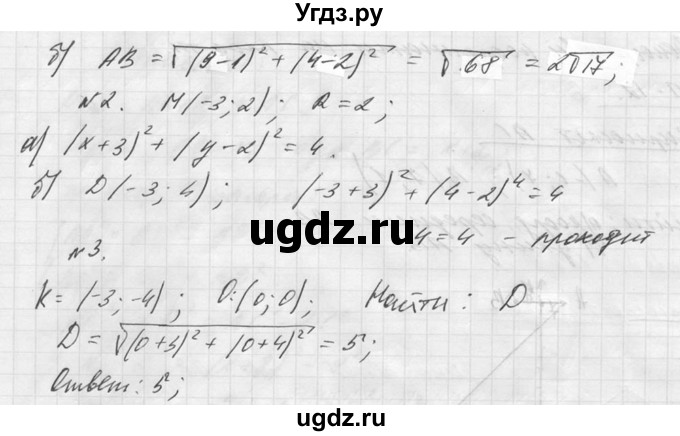 Угдз.ру
б) AB = √((9-1)² + (4-2)²) = √68 = 2√17;
№2. M(-3; 2); R = 2;
а) (x+3)² + (y-2)² = 4.
б) D(-3; 4); (-3+3)² + (4-2)⁴ = 4
4 = 4 – проходит
ugdz.ru
№3.
K = (-3; -4); O: (0; 0); Найти: D
D = √((0+3)² + (0+4)²) = 5;
Ответ: 5;
ugdz.ru